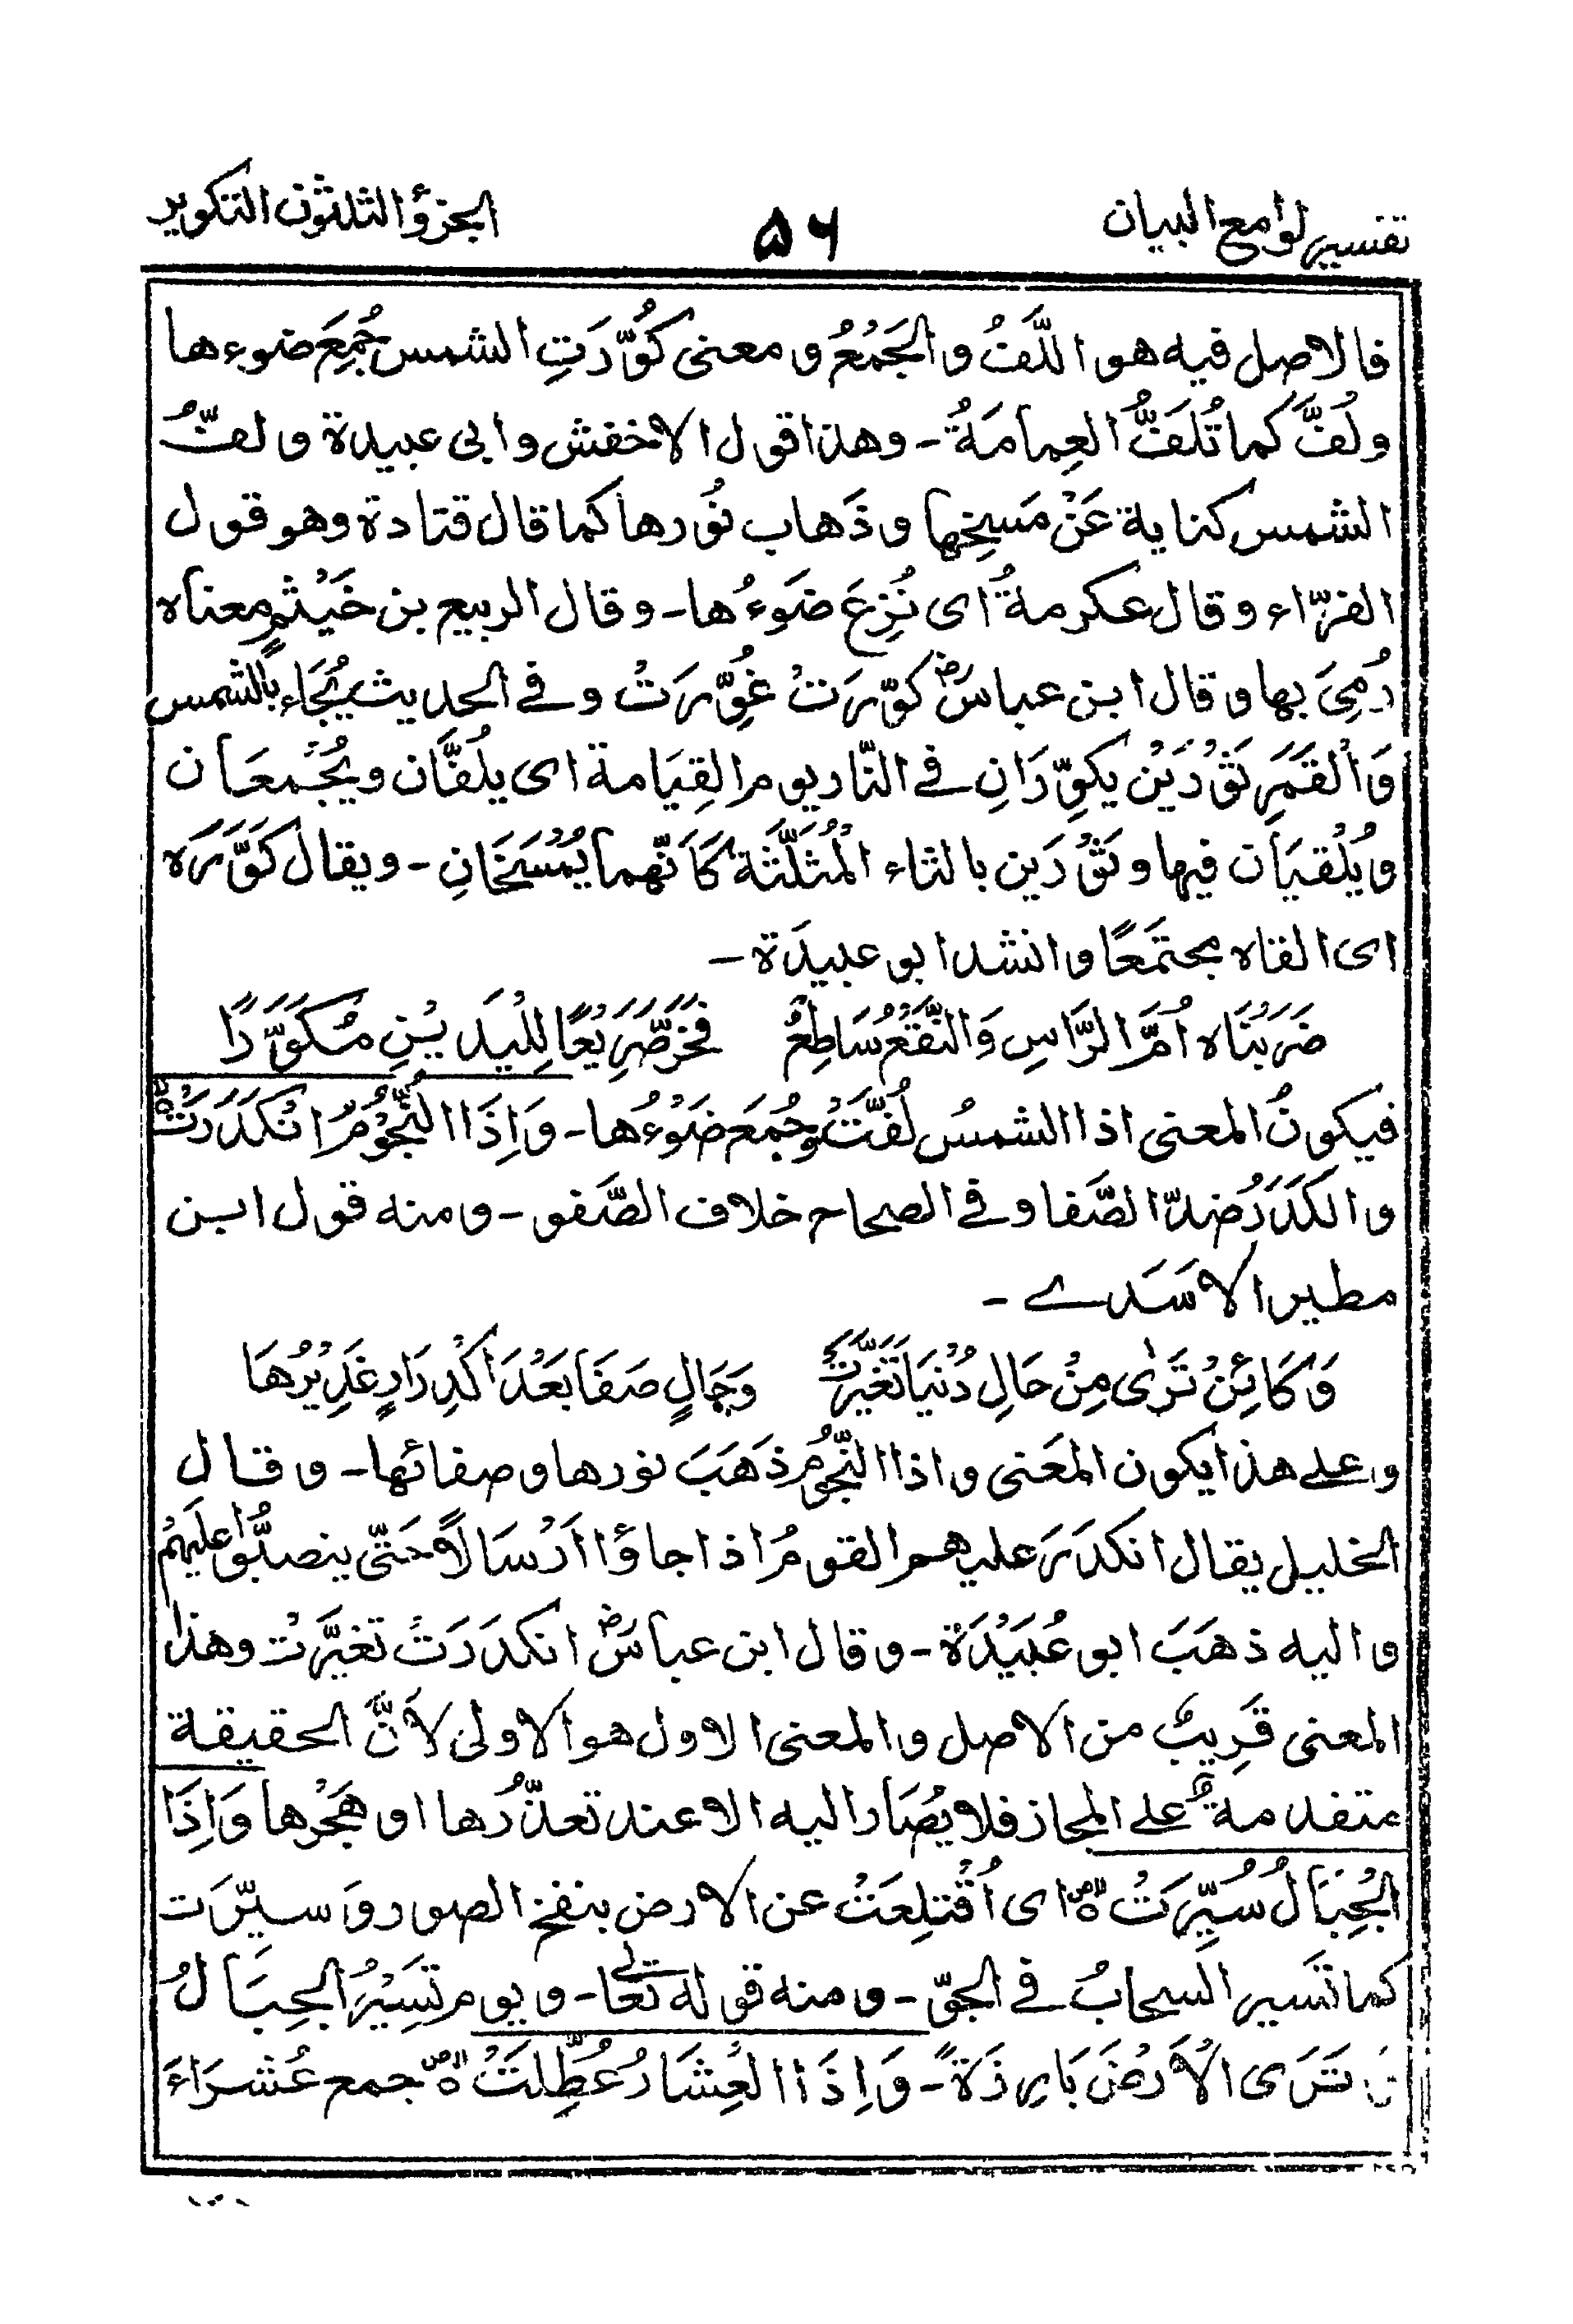 تفسير لوامع البيان ۵۶ الجزؤ الثلثون التكوير
فالاصل فيه هو اللَّفُّ والجَمْعُ و معنى كُوِّرَتِ الشمس جُمِعَ ضوءها
و لُفَّ كما تُلَفُّ العِمامَةُ - وهذا قول الاخفش وابى عبيدة و لفّ
الشمس كناية عَنْ مَسخِها و ذَهاب نُورها كما قال قتادة وهو قول
الفرّاء و قال عكرمةُ اى نُزِعَ ضَوءُها - و قال الربيع بن خَيْثمٍ معناه
رُمِىَ بها و قال ابن عباسؓ كوّرتْ غُوِّرَتْ و فے الحديث يُجَاء بالشمس
وَالْقَمَرِ ثَوْرَيْن يكوِّرَانِ فے النّار يوم القِيَامة اى يلُفَّان و يُجْمعَان
و يُلْقيَان فيها و ثَوْرَين بالثاء المُثَلَّثَة كَاَنّهما يُمْسَخَانِ - و يقال كَوَّرَه
اى القاه مجتمَعًا و انشد ابو عبيدَة -
ضَرَبْنَاه اُمَّ الرَّاسِ وَالنَّقْعُ سَاطِعُ فَخَرَّ صَرِيْعًا لِلْيَدَيْنِ مُكَوَّرَا
فيكونُ المعنى اذا الشمسُ لُفَّتْ وجُمِعَ ضَوْءُها - وَاِذَا النُّجُوْمُ انْكَدَرَتْ
و الكَدَرُ ضدّ الصَّفا و فے الصحاح خلاف الصَّفو - و منه قول ابن
مطير الاسَدے -
وَكَائِنْ تَرٰى مِنْ حَالِ دُنْيَا تَغَيَّرَتْ وَحَالٍ صَفَا بَعْدَ اكْدِرَارٍ غَدِيْرُهَا
و على هذا يكون المعَنى و اذا النّجومُ ذَهَبَ نورها و صفائها - و قال
الخليل يقال انكدَرَ عليهم القومُ اذا جاؤا اَرْسَالًا حَتّى ينصبّوا عليهم
و اليه ذهَبَ ابو عُبَيْدَة - و قال ابن عباسؓ انكدَرَتْ تغيّرَت وهذا
المعنى قَرِيبٌ من الاصل و المعنى الاول هو الاولى لاَنَّ الحقيقة
متقدمةٌ على المجاز فلا يصَار اليه الا عند تعذّرُها او هَجْرها وَاِذَا
الْجِبَالُ سُيِّرَتْ اى اُقْتلِعَتْ عن الارض بنفخ الصور و سيّرت
كما تَسير السحابُ فے الجوّ - و منه قوله تعالى - و يوم تسِيْرُ الجِبَالُ
تَرَى الْاَرْضَ بَارِزَةً - وَاِذَا الْعِشَارُ عُطِّلَتْ جمع عُشرَاءَ